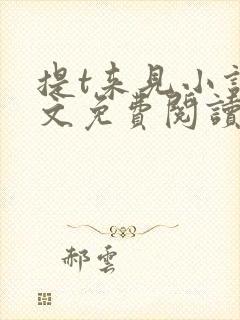 提t来见小說
文免費閱讀
郝雲